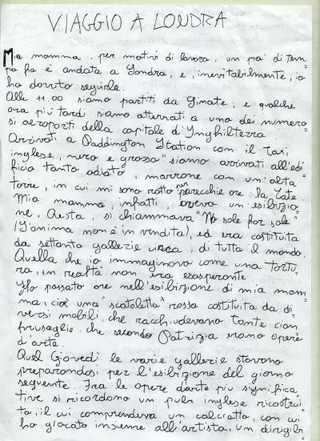 VIAGGIO A LONDRA
Mia mamma, per motivi di lavoro, un pai di tem
po fa è andata a Londra, e, inevitabilmente, io
ho dovuto seguirla.
Alle 11.00 siamo partiti da Linate, e qualche
ora più tardi siamo atterrati a uno dei numero
si aeroporti della capitale d'Inghilterra
Arrivati a Paddington Station con il taxi
inglese, nero e grosso siamo arrivati all'edi
ficio tanto odiato, marrone con un'alta
torre, in cui mi sono rotto per parecchie ore: la Tate.
Mia mamma, infatti, aveva un esibizio
ne. Questa, si chiammava "No sole for sale"
(L'anima non è in vendita), ed era costituita
da settanta gallerie circa, di tutto il mondo.
Quella che io immaginavo come una tortu
ra, in realtà non era esasperante
Ho passato ore nell'esibizione di mia mam
ma: cioè una "scatoletta" rossa costituita da di
versi mobili, che racchiudevano tante cian
frusaglie, che secondo Patrizia erano opere
d'arte.
Quel Giovedì le varie gallerie stavano
preparandosi per l'esibizione del giorno
seguente. Fra le opere d'arte più significa
tive si ricordano un pub inglese ricostrui
to, il cui comprendeva un calcetto, con cui
ho giocato insieme all'artista, un dirigibi